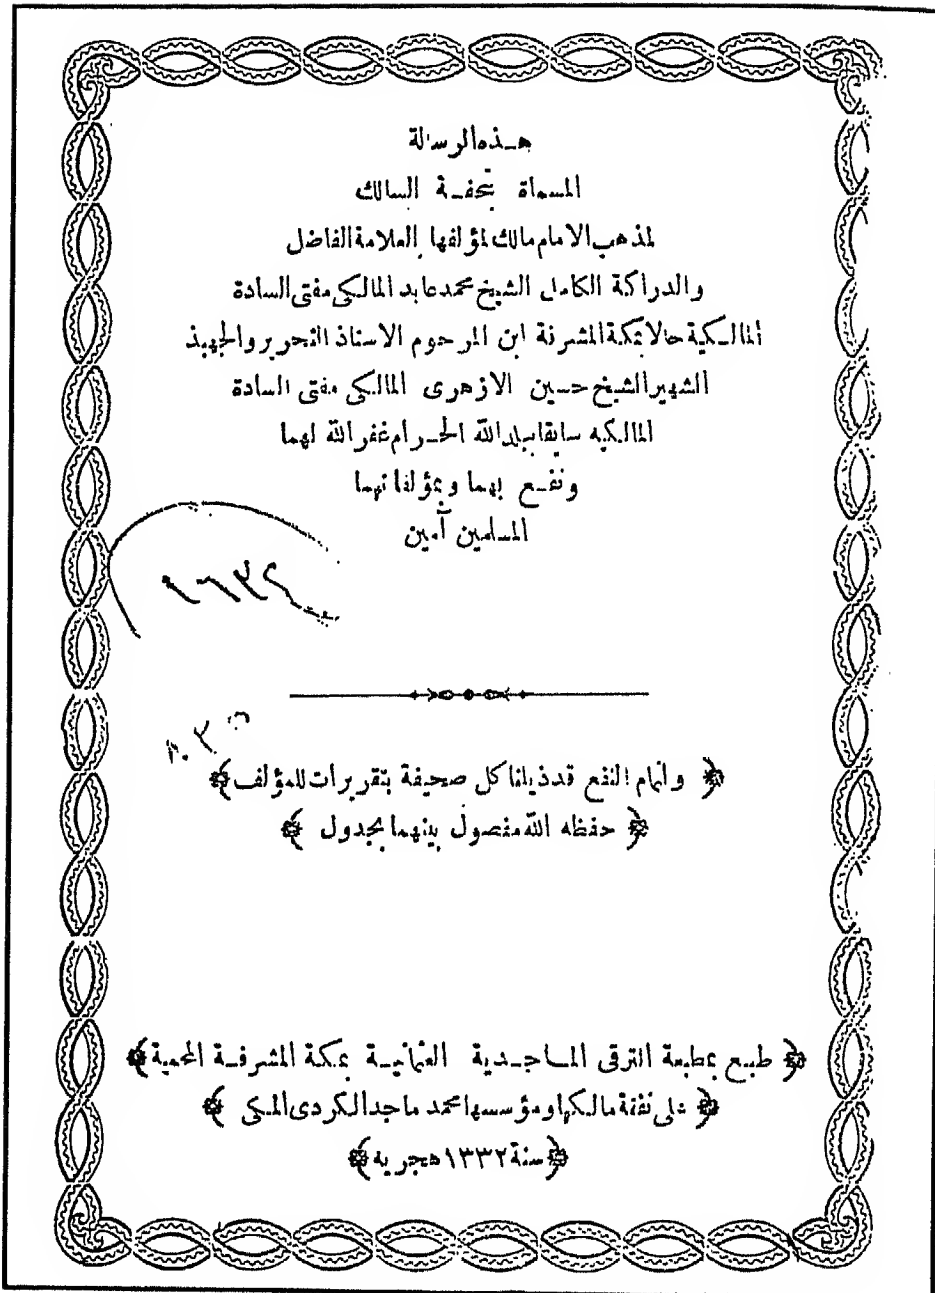 هذه الرسالة
المسماة بتحفة السالك
لمذهب الامام مالك لمؤلفها العلامة الفاضل
والدراكة الكامل الشيخ محمد عابد المالكى مفتى السادة
المالكية حالا بمكة المشرفة ابن المرحوم الاستاذ النحرير والجهبذ
الشهير الشيخ حسين الازهرى المالكى مفتى السادة
المالكيه سابقا ببلد الله الحرام غفر الله لهما
ونفع بهما وبمؤلفاتهما
المسلمين آمين
﴿ واتمام النفع قد ذيلنا كل صحيفة بتقريرات للمؤلف ﴾
﴿ حفظه الله مفصول بينهما بجدول ﴾
﴿ طبع بمطبعة الترقى الماجدية العثمانية بمكة المشرفة المحمية ﴾
﴿ على نفقة مالكها ومؤسسها محمد ماجد الكردى المكى ﴾
﴿ سنة ١٣٣٢ هجريه ﴾